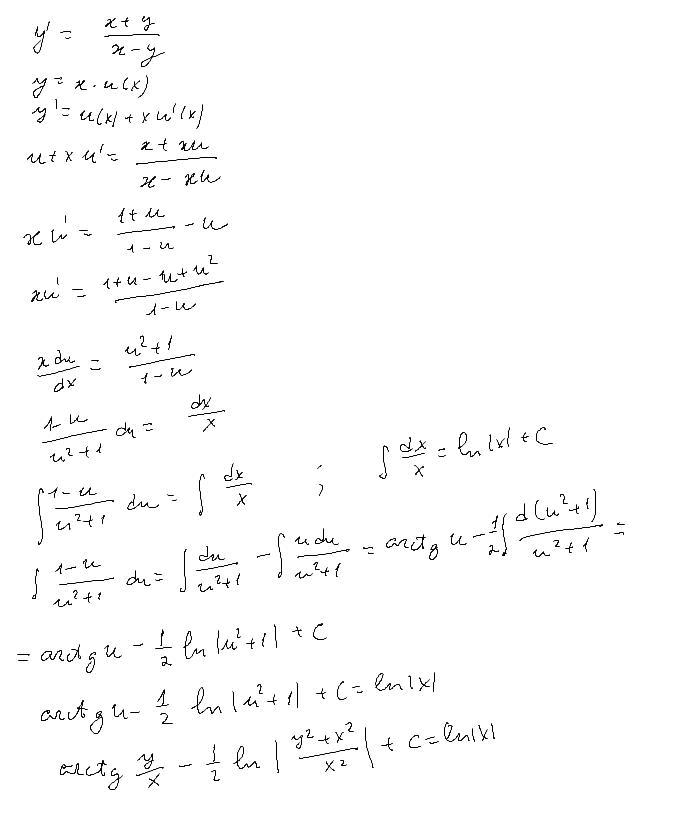 y' = \frac{x+y}{x-y}
y = x · u(x)
y' = u(x) + x u'(x)
u + x u' = \frac{x + xu}{x - xu}
x u' = \frac{1+u}{1-u} - u
xu' = \frac{1+u-u+u^2}{1-u}
\frac{x du}{dx} = \frac{u^2+1}{1-u}
\frac{1-u}{u^2+1} du = \frac{dx}{x}
∫ \frac{1-u}{u^2+1} du = ∫ \frac{dx}{x} ; ∫ \frac{dx}{x} = ln |x| + C
∫ \frac{1-u}{u^2+1} du = ∫ \frac{du}{u^2+1} - ∫ \frac{u du}{u^2+1} = arctg u - \frac{1}{2} ∫ \frac{d(u^2+1)}{u^2+1} =
= arctg u - \frac{1}{2} ln |u^2+1| + C
arctg u - \frac{1}{2} ln |u^2+1| + C = ln |x|
arctg \frac{y}{x} - \frac{1}{2} ln | \frac{y^2+x^2}{x^2} | + C = ln |x|